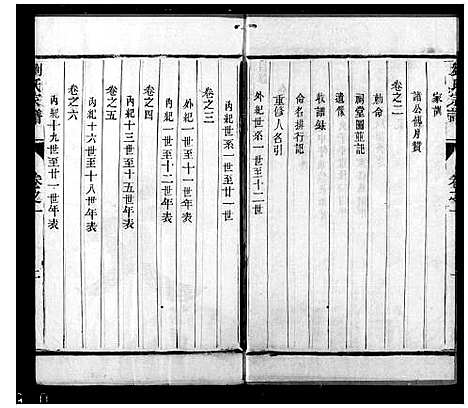 劉氏宗譜
卷之一
家箴
諸公傳月贊
卷之二
勅命
祠堂圖並記
遺像
收譜錄
命名排行記
重修人名引
外紀世系一世至十二世
內紀世系一世至廿一世
卷之三
外紀一世至十一世年表
內紀一世至十二世年表
卷之四
內紀十三世至十五世年表
卷之五
內紀十六世至十八世年表
卷之六
內紀十九世至廿一世年表
劉氏宗譜
卷之一